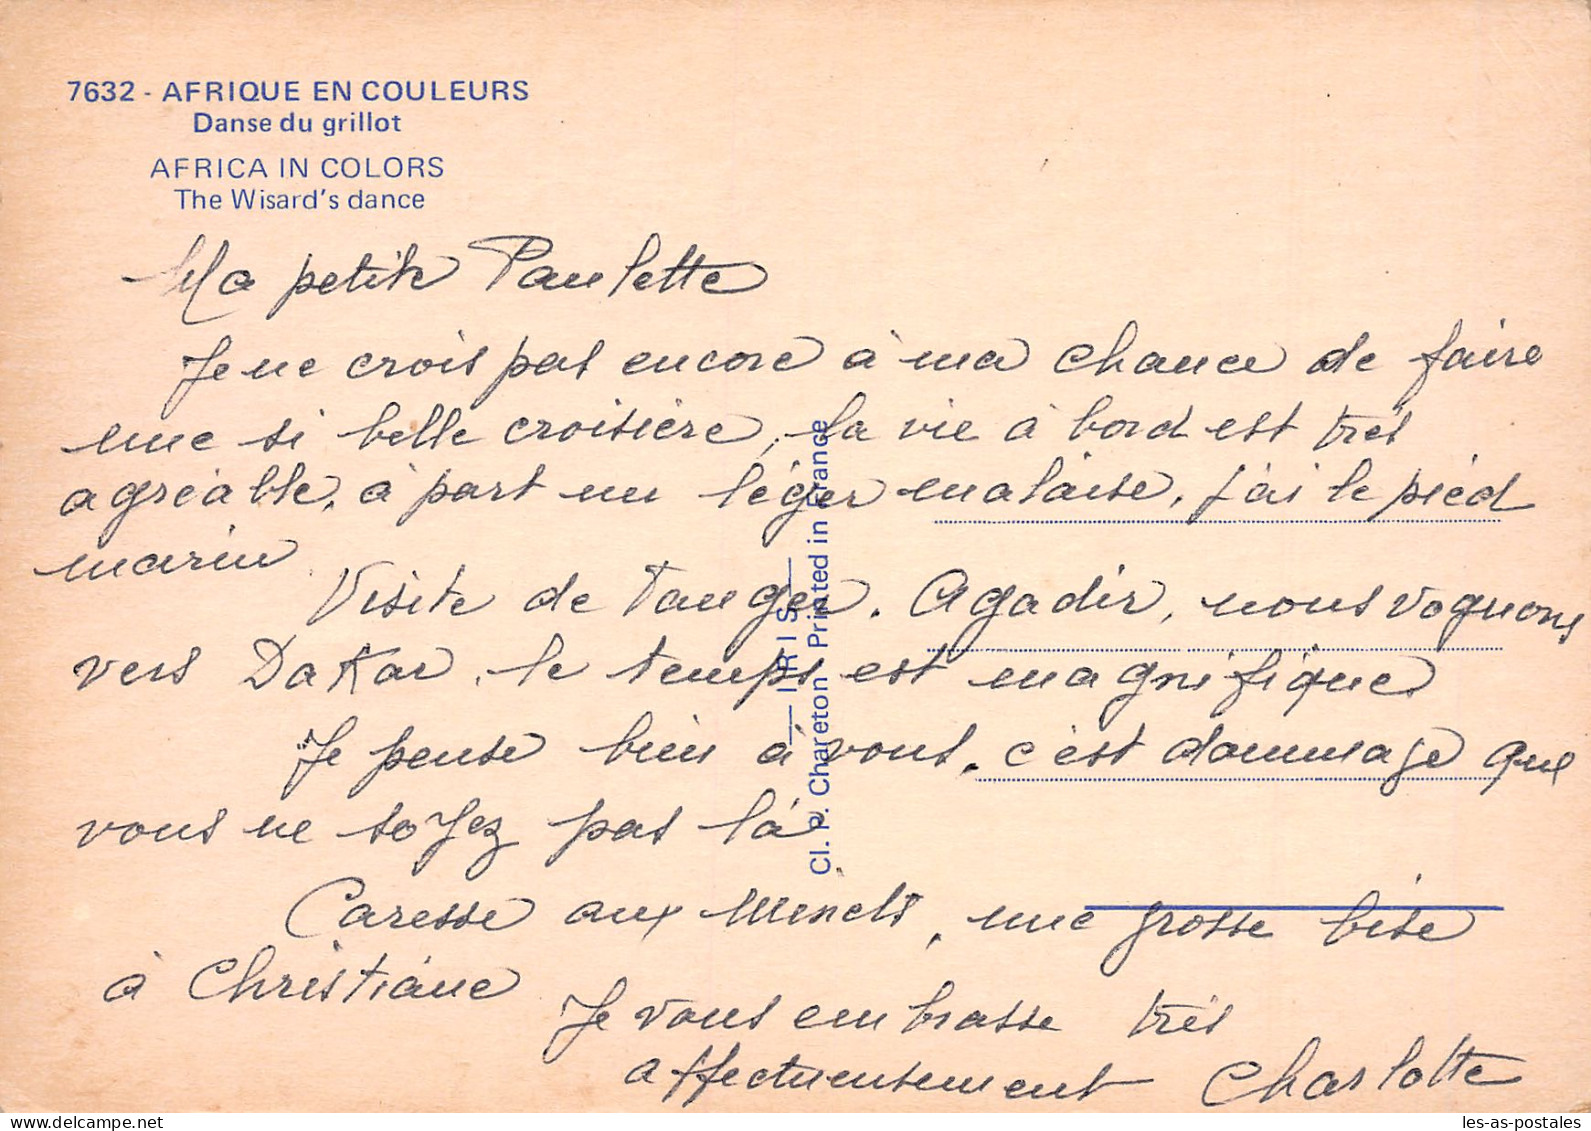 7632 - AFRIQUE EN COULEURS
Danse du grillot
AFRICA IN COLORS
The Wisard's dance
Ma petite Paulette
Je ne crois pas encore à ma chance de faire
une si belle croisière, la vie à bord est très
agréable, à part un léger malaise, j'ai le pied
marin
Visite de Tanger. Agadir, nous voguons
vers Dakar, le temps est magnifique
Je pense bien à vous, c'est dommage que
vous ne soyez pas là
Caresse aux minets, une grosse bise
à Christiane
Je vous embrasse très
affectueusement Charlotte
— IRIS —
Cl. P. Chareton - Printed in France
les-as-postales